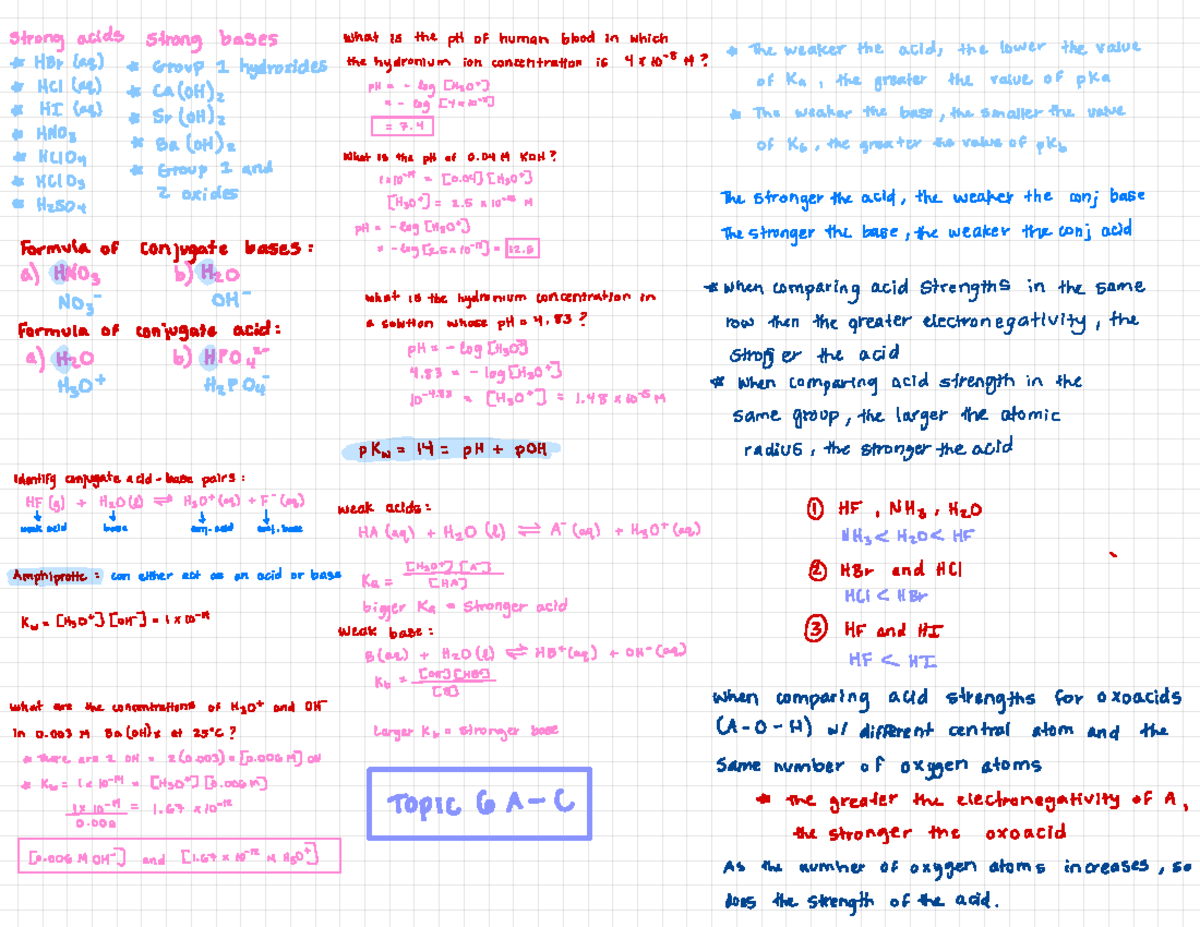 Strong acids
* HBr (aq)
* HCl (aq)
* HI (aq)
* HNO₃
* HClO₄
* HClO₃
* H₂SO₄
Strong bases
* Group 1 hydroxides
* Ca(OH)₂
* Sr(OH)₂
* Ba(OH)₂
* Group 1 and
2 oxides
Formula of conjugate bases:
a) HNO₃ b) H₂O
NO₃⁻ OH⁻
Formula of conjugate acid:
a) H₂O b) HPO₄²⁻
H₃O⁺ H₂PO₄⁻
Identify conjugate acid-base pairs:
HF(g) + H₂O(l) ⇌ H₃O⁺(aq) + F⁻(aq)
↓ ↓ ↓ ↓
weak acid base conj. acid conj. base
Amphiprotic: can either act as an acid or base
Kw = [H₃O⁺][OH⁻] = 1 x 10⁻¹⁴
What are the concentrations of H₃O⁺ and OH⁻
in 0.003 M Ba(OH)₂ at 25°C?
* There are 2 OH = 2(0.003) = [0.006 M] OH
* Kw = 1 x 10⁻¹⁴ = [H₃O⁺][0.006 M]
1 x 10⁻¹⁴ / 0.006 = 1.67 x 10⁻¹²
[0.006 M OH⁻] and [1.67 x 10⁻¹² M H₃O⁺]
What is the pH of human blood in which
the hydronium ion concentration is 4 x 10⁻⁸ M?
pH = - log [H₃O⁺]
= - log [4 x 10⁻⁸]
= 7.4
What is the pH of 0.04 M KOH?
1 x 10⁻¹⁴ = [0.04][H₃O⁺]
[H₃O⁺] = 2.5 x 10⁻¹³ M
pH = - log [H₃O⁺]
= - log [2.5 x 10⁻¹³] = 12.6
What is the hydronium concentration in
a solution whose pH = 4.83?
pH = - log [H₃O⁺]
4.83 = - log [H₃O⁺]
10⁻⁴·⁸³ = [H₃O⁺] = 1.48 x 10⁻⁵ M
pKw = 14 = pH + pOH
Weak acids:
HA (aq) + H₂O (l) ⇌ A⁻ (aq) + H₃O⁺ (aq)
Ka = [H₃O⁺][A⁻] / [HA]
bigger Ka = stronger acid
Weak base:
B(aq) + H₂O(l) ⇌ HB⁺(aq) + OH⁻(aq)
Kb = [OH⁻][HB⁺] / [B]
Larger Kb = stronger base
Topic 6 A-C
* The weaker the acid, the lower the value
of Ka, the greater the value of pKa
* The weaker the base, the smaller the value
of Kb, the greater the value of pKb
The stronger the acid, the weaker the conj base
The stronger the base, the weaker the conj acid
* When comparing acid strengths in the same
row then the greater electronegativity, the
stronger the acid
* When comparing acid strength in the
same group, the larger the atomic
radius, the stronger the acid
① HF, NH₃, H₂O
NH₃ < H₂O < HF
② HBr and HCl
HCl < HBr
③ HF and HI
HF < HI
When comparing acid strengths for oxoacids
(A-O-H) w/ different central atom and the
same number of oxygen atoms
* the greater the electronegativity of A,
the stronger the oxoacid
As the number of oxygen atoms increases, so
does the strength of the acid.